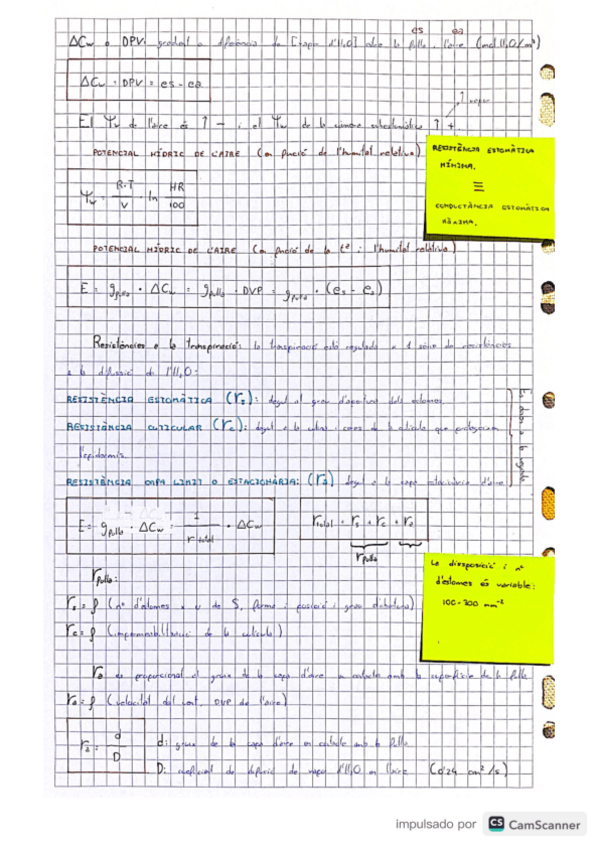 es ea
ΔCw o DPV: gradient o diferència de [vapor d'H2O] entre la fulla i l'aire (mol H2O/m³)
ΔCw = DPV = es - ea
↑ vapor
El Ψw de l'aire és ↑ - i el Ψw de la càmera subestomàtica ↑ +
POTENCIAL HÍDRIC DE L'AIRE (en funció de l'humitat relativa)
RESISTÈNCIA ESTOMÀTICA
MÍNIMA.
≡
CONDUCTÀNCIA ESTOMÀTICA
MÀXIMA.
Ψw = R·T / V · ln HR / 100
POTENCIAL HÍDRIC DE L'AIRE (en funció de la tª i l'humitat relativa)
E = gfulla · ΔCw = gfulla · DVP = gfulla · (es - ea)
Resistències a la transpiració: la transpiració està regulada x 1 sèrie de resistències
a la difusió de l'H2O:
RESISTÈNCIA ESTOMÀTICA (rs): degut al grau d'apertura dels estomes
RESISTÈNCIA CUTICULAR (rc): degut a la cutina i ceres de la cutícula que protegeixen
l'epidermis.
RESISTÈNCIA CAPA LÍMIT O ESTACIONÀRIA: (ra) degut a la capa estacionària d'aire
E = gfulla · ΔCw = 1 / r total · ΔCw
rtotal = rs + rc + ra
rfulla
rfulla:
La disposició i nº
d'estomes és variable:
100-300 mm⁻²
rs = f (nº d'estomes x u de S, forma i posició i grau d'obertura)
rc = f (impermeabilització de la cutícula)
ra és proporcional al gruix de la capa d'aire en contacte amb la superfície de la fulla
ra = f (velocitat del vent, DVP de l'aire)
ra = d / D
d: gruix de la capa d'aire en contacte amb la fulla
D: coeficient de difusió de vapor d'H2O en l'aire (0'24 cm²/s)
impulsado por CS CamScanner